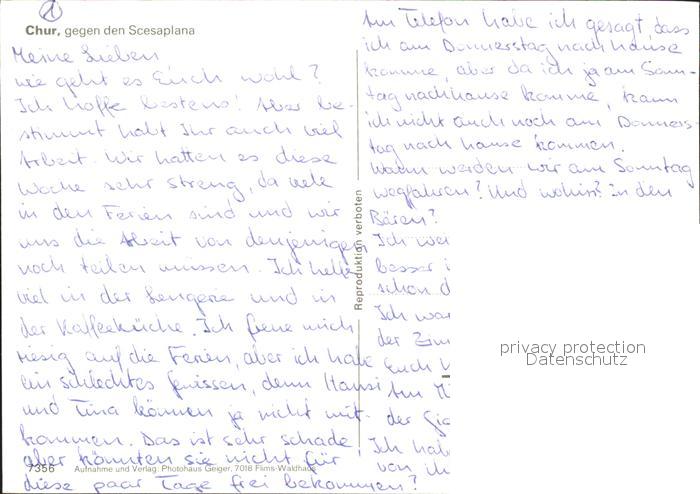 1
Chur, gegen den Scesaplana
Meine Lieben
wie geht es Euch wohl?
Ich hoffe bestens! Aber be-
stimmt habt Ihr auch viel
Arbeit. Wir hatten es diese
Woche sehr streng, da viele
in den Ferien sind und wir
uns die Arbeit von denjenigen
noch teilen müssen. Ich helfe
viel in der Lingerie und in
der Kaffeeküche. Ich freue mich
riesig auf die Ferien, aber ich habe
ein schlechtes Gewissen, denn Hansi
und Tina können ja nicht mit-
kommen. Das ist sehr schade,
aber könnten sie nicht für
diese paar Tage frei bekommen?
7356 Aufnahme und Verlag: Photohaus Geiger, 7018 Flims-Waldhaus
Reproduktion verboten
Am Telefon habe ich gesagt, dass
ich am Donnerstag nachhause
komme, aber da ich ja am Sams-
tag nachhause komme, kann
ich nicht auch noch am Donners-
tag nach hause kommen.
Wann werden wir am Sonntag
wegfahren? Und wohin? In den
Bären?
Ich
besser
schon
Ich war
der
Euch
Am
der
Ich hab
von
privacy protection
Datenschutz